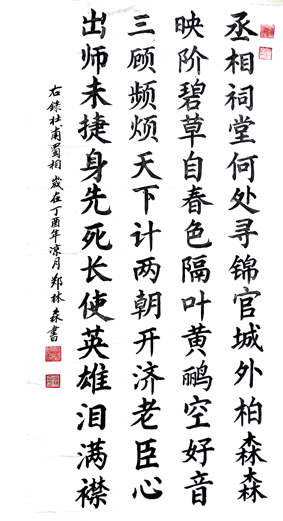 丞相祠堂何处寻锦官城外柏森森
映阶碧草自春色隔叶黄鹂空好音
三顾频烦天下计两朝开济老臣心
出师未捷身先死长使英雄泪满襟
右录杜甫蜀相 岁在丁酉年凉月郑林森书